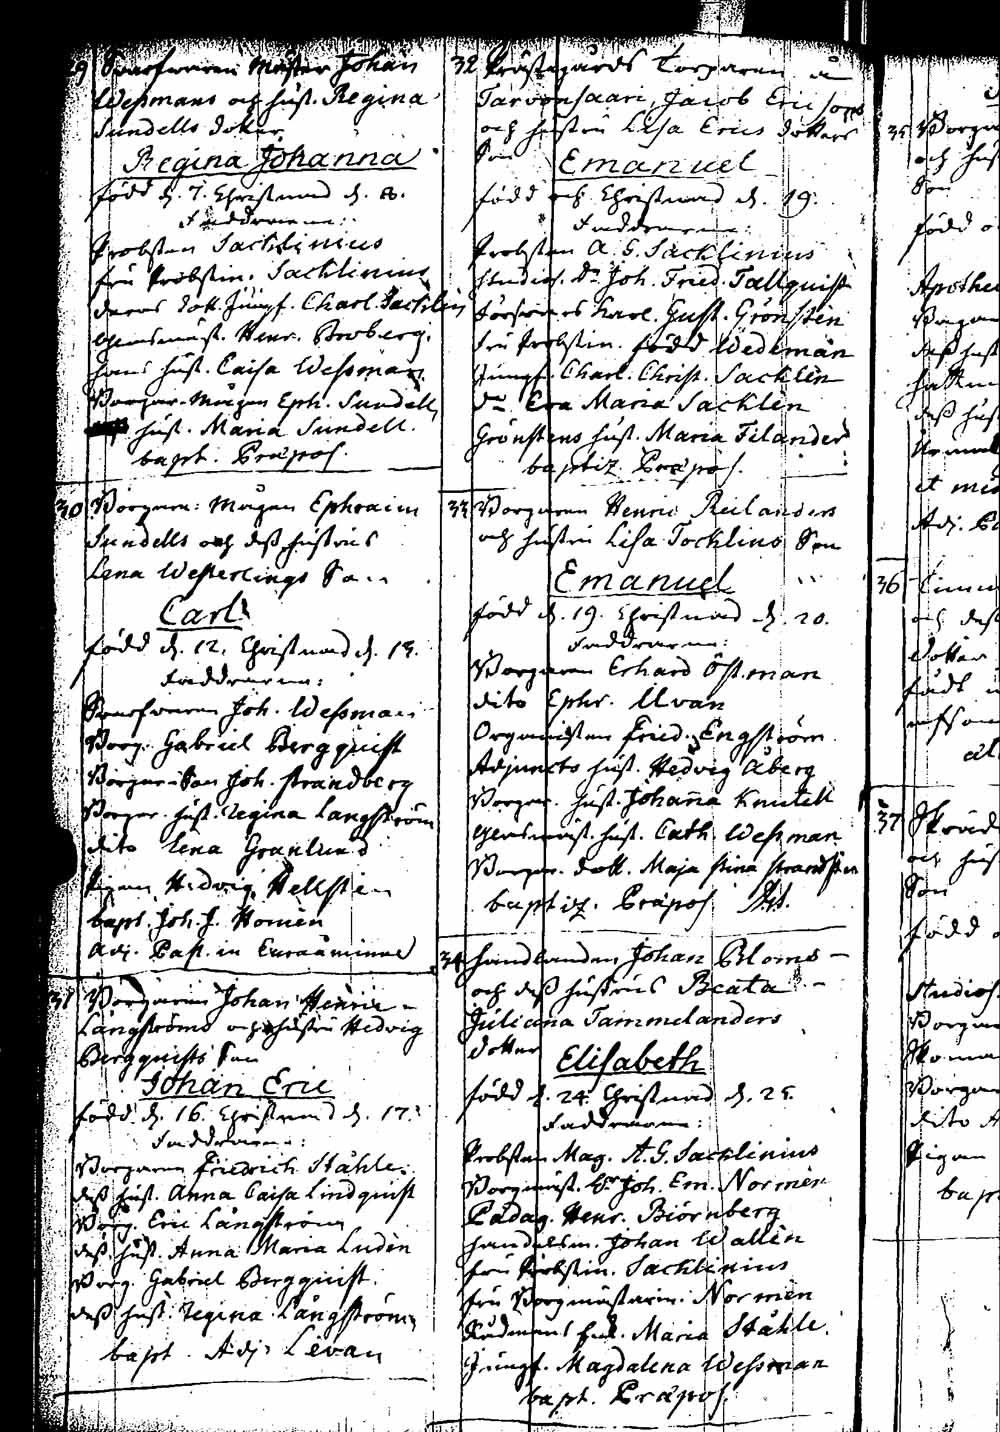 29 Swarfwaren Mäster Johan
Weßmans och hust. Regina
Sundells dotter
Regina Johanna
född d. 7. Christnad d. 8.
Faddrarne:
Probsten Sacklinius
fru Probstin. Sacklinius
deras dott. Jungf. Charl. Sacklén
Henr. Broberg.
hans hust. Caisa Weßman
Borgar. Eph. Sundell
hust. Maria Sundell.
bapt. Præpos.
30 Borgare: Ephraim
Sundells och deß hustrus
Lena Westerlings Son
Carl
född d. 12. Christnad d. 13.
Faddrarne:
Swarfwaren Joh. Weßman
Borg. Gabriel Bergquist
Borgare-Son Joh. Strandberg
Borgar. hust. Regina Langström
dito Lena Granlund
Pigan Hedvig Hellsten
bapt. Joh. J. Homén
Adj. Past. in Euraåminne
31 Borgaren Johan Henric
Långströms och hustru Hedvig
Bergquists Son
Johan Eric
född d. 16. Christnad d. 17.
Faddrarne:
Borgaren Friedrich Ståhle.
deß hust. Anna Caisa Lindquist
Borg. Eric Långström
deß hust. Anna Maria Ludén
Borg. Gabriel Bergquist.
deß hust. Regina Långström
bapt. Adj. Levan
32 Prästegårds Torparen å
Tarvonsaari, Jacob Ericsons
och hustru Lisa Erics dotters
Son Emanuel
född och Christnad d. 19.
Faddrarne:
Probsten A. G. Sacklinius
Studios. Dn Joh. Fried. Tallquist
Carl. Gust. Grönsten
Fru Probstin. född Wedeman
Jungf. Charl. Christ. Sacklén
Do Eva Maria Sacklén
Grönstens hust. Maria Filander
baptiz. Præpos.
33 Borgaren Henric Reilanders
och hustru Lisa Tocklins Son
Emanuel
född d. 19. Christnad d. 20.
Faddrarne:
Borgaren Erhard Östman
dito Ephr. Alvan
Organisten Fried. Engström
Adjuncts hust. Hedvig Åberg
Borgar. hust. Johanna Knutell
hust. Cath. Weßman
Borgar. dott. Maja Stina Strandsten
baptiz. Præpos.
34 Handlanden Johan Bloms
och deß hustrus Beata
Juliana Tammelanders
dotter Elisabeth
född d. 24. Christnad d. 25.
Faddrarne:
Probsten Mag. A. G. Sacklinius
Borgmäst. Joh. Em. Normén
Pædag. Henr. Biörnberg
Handelsm. Johan Wallén
fru Probstin. Sacklinius
fru Borgmästarin. Normén
Rådmans fru. Maria Ståhle.
Jungf. Magdalena Weßman
bapt. Præpos.
35 Borgar
och hus
Son
född o
Apothe
Borgar
deß hust
deß hus
et mis
Adj. P
36
och deß
dotter
född
37
och hus
Son
född
Studios.
Borgar
Borgar
dito A
Pigan
bapt